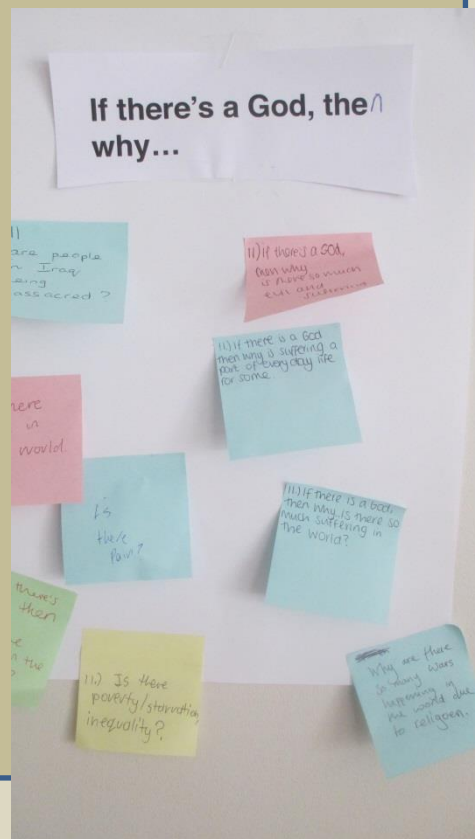 If there's a God, then
why...
11
are people
n Iraq
eing
assacred?
11) If there's a GOD,
then why
is there so much
evil and
suffering
11) If there is a God
then why is suffering a
part of every day life
for some.
here
in
world.
Is
there
Pain?
11.) If there is a God,
then why is there so
much suffering in
the world?
there's
then
e
n the
?
11.) Is there
poverty/starvation,
inequality?
Why are there
so many wars
happening in
the world due
to religoen.